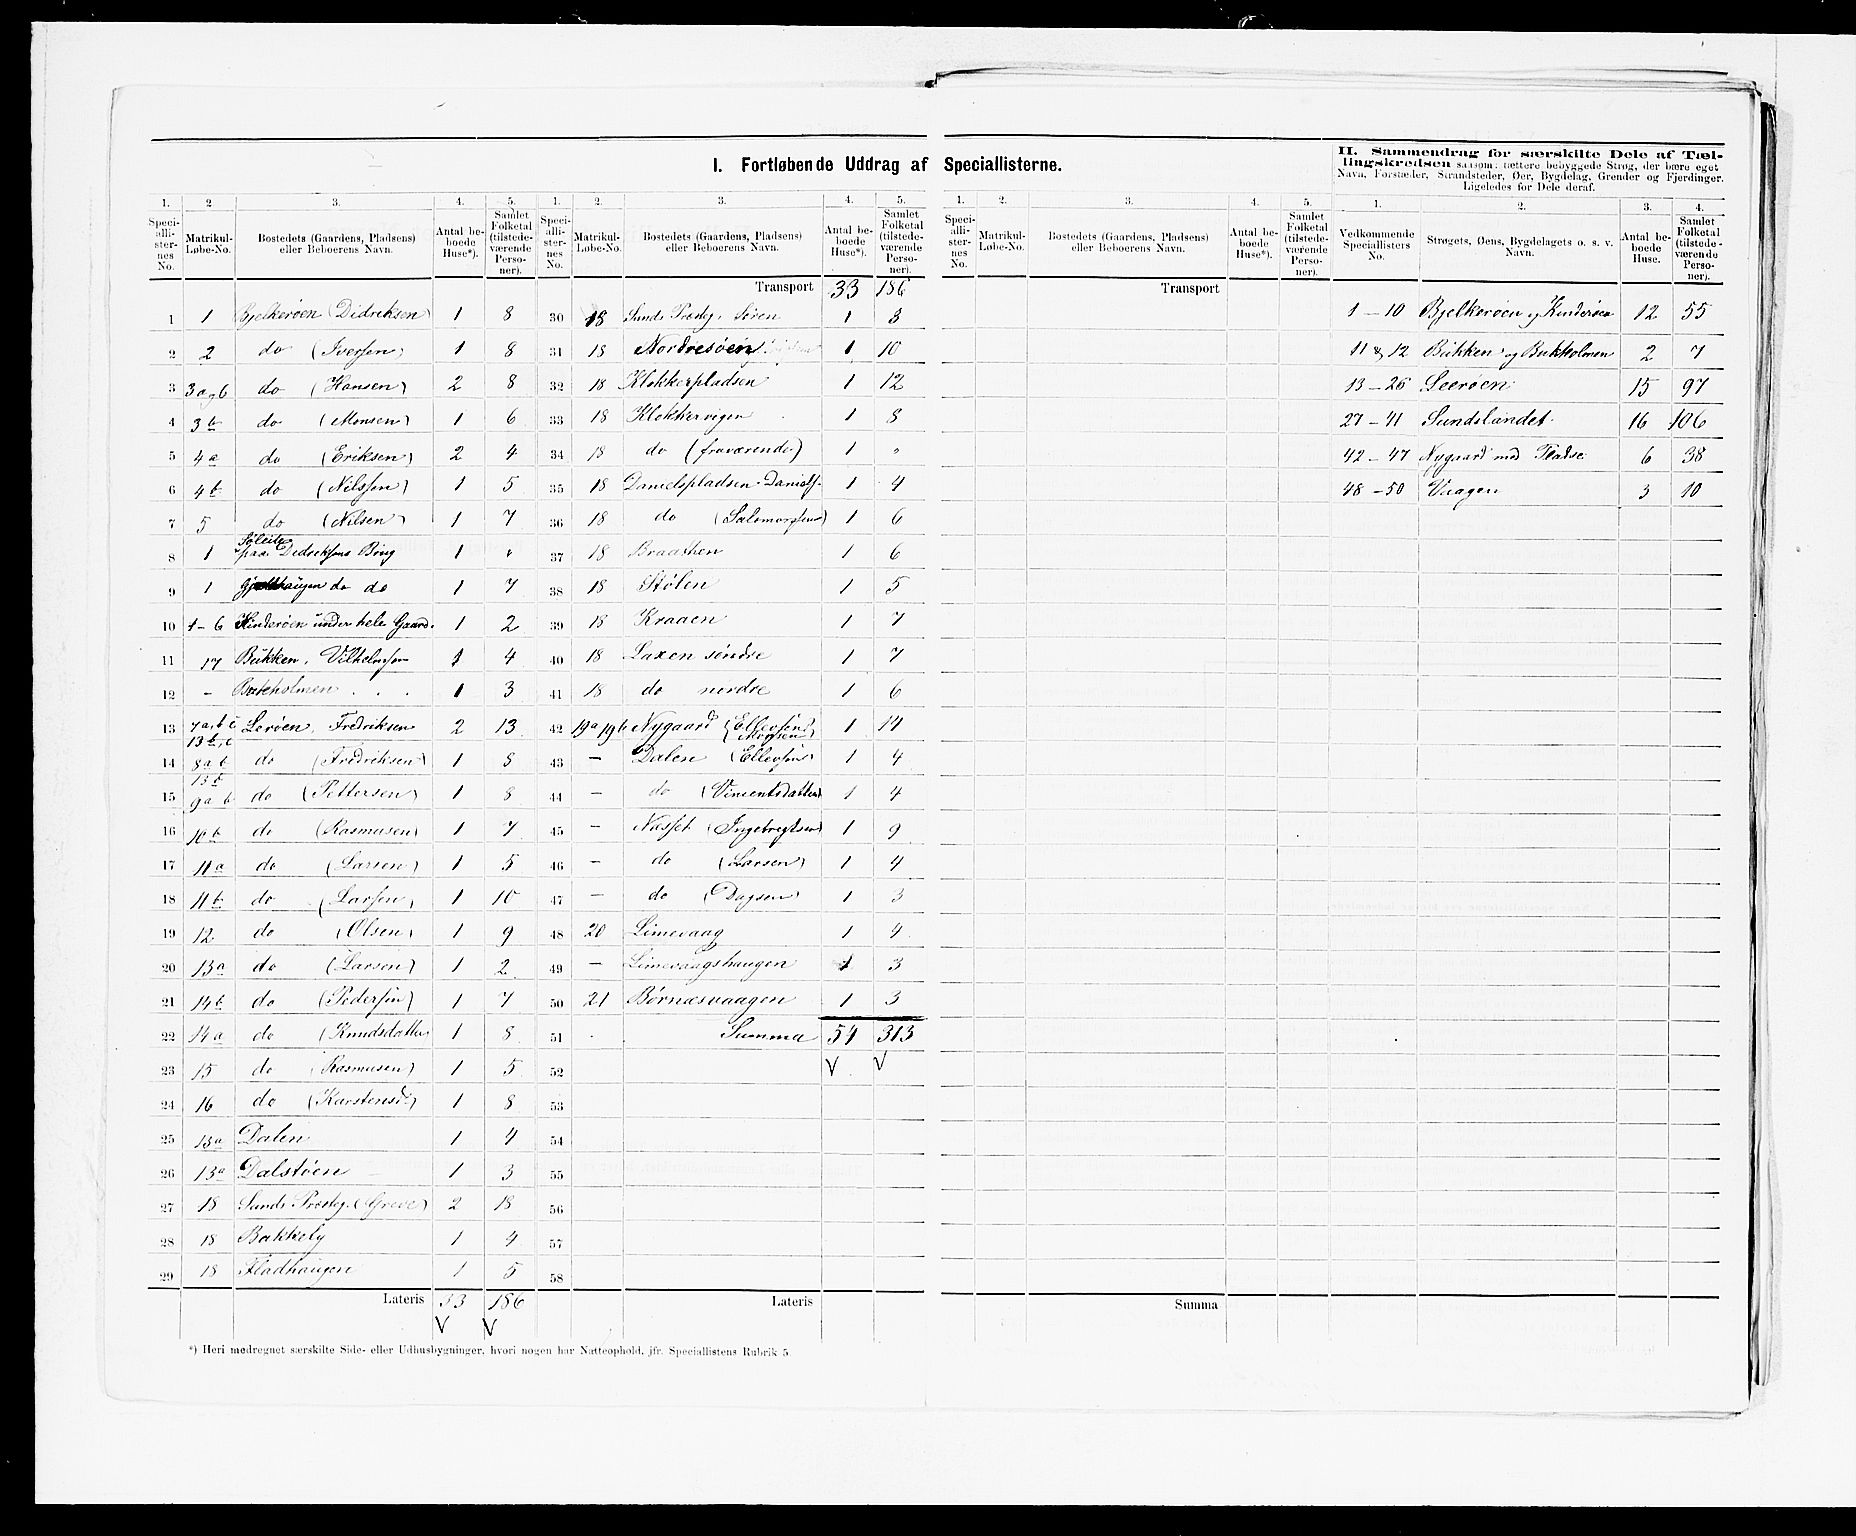 I. Fortløbende Uddrag af Speciallisterne.
II. Sammendrag for særskilte Dele af Tæl-
lingskredsen saasom: tættere bebyggede Strøg, der bære eget
Navn, Forstæder, Strandsteder, Øer, Bygdelag, Grender og Fjerdinger.
Ligeledes for Dele deraf.
1. 2. 3. 4. 5. 1. 2. 3. 4. 5. 1. 2. 3. 4. 5. 1. 2. 3. 4.
Speci-alli-ster-nes No. Matrikul-Løbe-No. Bostedets (Gaardens, Pladsens) eller Beboerens Navn. Antal be-boede Huse*). Samlet Folketal (tilstede-værende Perso-ner).
Speci-alli-ster-nes No. Matrikul-Løbe-No. Bostedets (Gaardens, Pladsens) eller Beboerens Navn. Antal be-boede Huse*). Samlet Folketal (tilstede-værende Perso-ner).
Speci-alli-ster-nes No. Matrikul-Løbe-No. Bostedets (Gaardens, Pladsens) eller Beboerens Navn. Antal be-boede Huse*). Samlet Folketal (tilstede-værende Perso-ner).
Vedkommende Speciallisters No. Strøgets, Øens, Bygdelagets o. s. v. Navn. Antal be-boede Huse. Samlet Folketal (tilstede-værende Perso-ner).
1 1 Bjelkerøen (Didriksen) 1 8
2 2 do (Iversen) 1 8
3 3a og b do (Hansen) 2 8
4 3b do (Monsen) 1 6
5 4a do (Eriksen) 2 4
6 4b do (Nilssen) 1 5
7 5 do (Nilsen) 1 7
8 1 paa Didriksens Brug 1 "
9 1 do do 1 7
10 1-6 Kinderøen under hele Gaard. 1 2
11 17 Bukken, Vilhelmsen 1 4
12 - Bukholmen . . . 1 3
13 7a,b c 13b,c Lerøen, Fredriksen 2 13
14 8a b do (Fredriksen) 1 8
15 13b 9a b do (Pettersen) 1 8
16 10b do (Rasmusen) 1 7
17 11a do (Larsen) 1 5
18 11b do (Larsen) 1 10
19 12 do (Olsen) 1 9
20 13a do (Larsen) 1 2
21 14b do (Pedersen) 1 7
22 14a do (Knudsdatter) 1 8
23 15 do (Rasmusen) 1 5
24 16 do (Karstensd.) 1 8
25 13a Dalen 1 4
26 13a Dalstøen 1 3
27 18 Sunds Præsteg. (Greve) 2 18
28 18 Bakkely 1 4
29 18 Fladhaugen 1 5
Lateris 33 186
V V
Transport 33 186
30 18 Sunds Præsteg. Søren 1 3
31 18 Nordresøen 1 10
32 18 Klokkerpladsen 1 12
33 18 Klokkervigen 1 8
34 18 do (fraværende) 1 "
35 18 Danielspladsen Daniels. 1 4
36 18 do 1 6
37 18 Braathen 1 6
38 18 Stølen 1 5
39 18 Kraaen 1 7
40 18 Laxen søndre 1 7
41 18 do nordre 1 6
42 19a 19b Nygaard (Ellevsen Monsen) 1 14
43 — Dalen (Ellevsen) 1 4
44 — do (Vincentsdatter) 1 4
45 — Næsset (Ingebregtsen) 1 9
46 — do (Larsen) 1 4
47 — do (Dagsen) 1 3
48 20 Limevaag 1 4
49 — Limevaagshaugen 1 3
50 21 Børnæsvaagen 1 3
51 Summa 54 313
52 V V
53
54
55
56
57
58
Lateris
Transport
Summa
1 — 10 Bjelkerøen og Kinderøen 12 55
11 & 12 Bukken og Bukholmen 2 7
13 — 26 Leerøen 15 97
27 — 41 Sundslandet 16 106
42 — 47 Nygaard med Pladse 6 38
48 — 50 Vaagen 3 10
*) Heri medregnet særskilte Side- eller Udhusbygninger, hvori nogen har Natteophold, jfr. Speciallistens Rubrik 5.